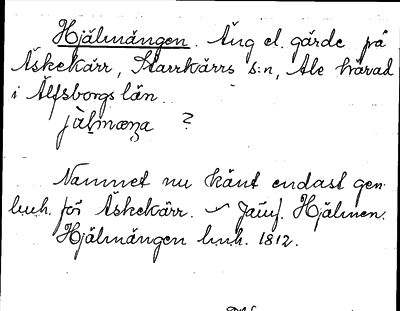 Hjälmängen. Äng el. gärde på
Äskekärr, Starrkärrs s:n, Ale härad
i Älfsborgs län.
jälmæŋa ?
Namnet nu känt endast gen.
luh. för Äskekärr. Jämf. Hjälmen.
Hjälmängen luh. 1812.